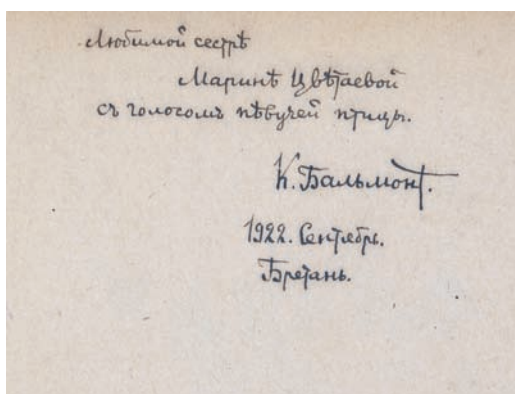 Любимой сестрѣ
Маринѣ Цвѣтаевой
съ голосомъ пѣвучей птицы.
К. Бальмонт.
1922. Сентябрь.
Бретань.